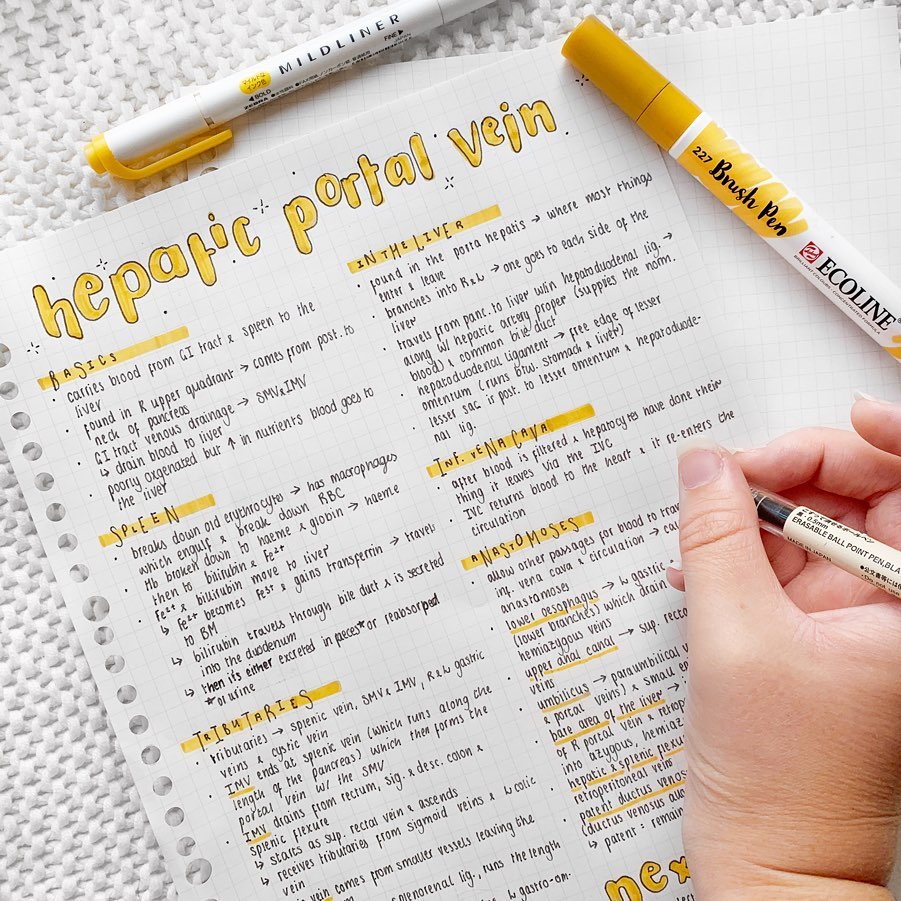 MILDLINER
FINE
JAPAN
BOLD
ZEBRA
227 Brush Pen
ECOLINE
hepatic portal vein
BASICS
carries blood from GI tract & spleen to the
liver
found in R upper quadrant → comes from post. to
neck of pancreas
GI tract venous drainage → SMV & IMV
↳ drain blood to liver
poorly oxygenated but ↑ in nutrients blood goes to
the liver
SPLEEN
breaks down old erythrocytes → has macrophages
which engulf & break down RBC
Hb broken down to haeme & globin → haeme
then to bilirubin & Fe²⁺
Fe²⁺ & bilirubin move to liver
↳ Fe²⁺ becomes Fe³⁺ & gains transferrin → travels
to BM
↳ bilirubin travels through bile duct & is secreted
into the duodenum
↳ then its either excreted in faeces* or reabsorped
* or urine
TRIBUTARIES
tributaries → splenic vein, SMV & IMV, R & L gastric
veins & cystic vein
IMV ends at splenic vein (which runs along the
length of the pancreas) which then forms the
portal vein w/ the SMV
IMV drains from rectum, sig. & desc. colon &
splenic flexure
↳ starts as sup. rectal vein & ascends
↳ receives tributaries from sigmoid veins & L colic
vein
vein comes from smaller vessels leaving the
splenorenal lig., runs the length
L gastro-om-
IN THE LIVER
found in the porta hepatis → where most things
enter & leave
branches into R & L → one goes to each side of the
liver
travels from panc. to liver w/in hepatoduodenal lig. →
along w/ hepatic artery proper (supplies the norm.
blood) & common bile duct
hepatoduodenal ligament → free edge of lesser
omentum (runs btw. stomach & liver)
lesser sac is post. to lesser omentum & hepatoduode-
nal lig.
INF. VENA CAVA
after blood is filtered & hepatocytes have done their
thing it leaves via the IVC
IVC returns blood to the heart & it re-enters the
circulation
ANASTOMOSES
allow other passages for blood to
inf. vena cava & circulation →
anastamoses
lower oesophagus → L gastric
(lower branches) which drain
hemiazygous veins
upper anal canal → sup. rectal
veins
umbilicus → paraumbilical
& portal veins) & small
bare area of the liver →
of R portal vein &
into azygous,
hepatic & splenic
retroperitoneal veins
patent ductus
(ductus venosus
↳ patent:
nex
ERASABLE BALL POINT PEN, BLA
0.5mm
MADE IN JAPAN